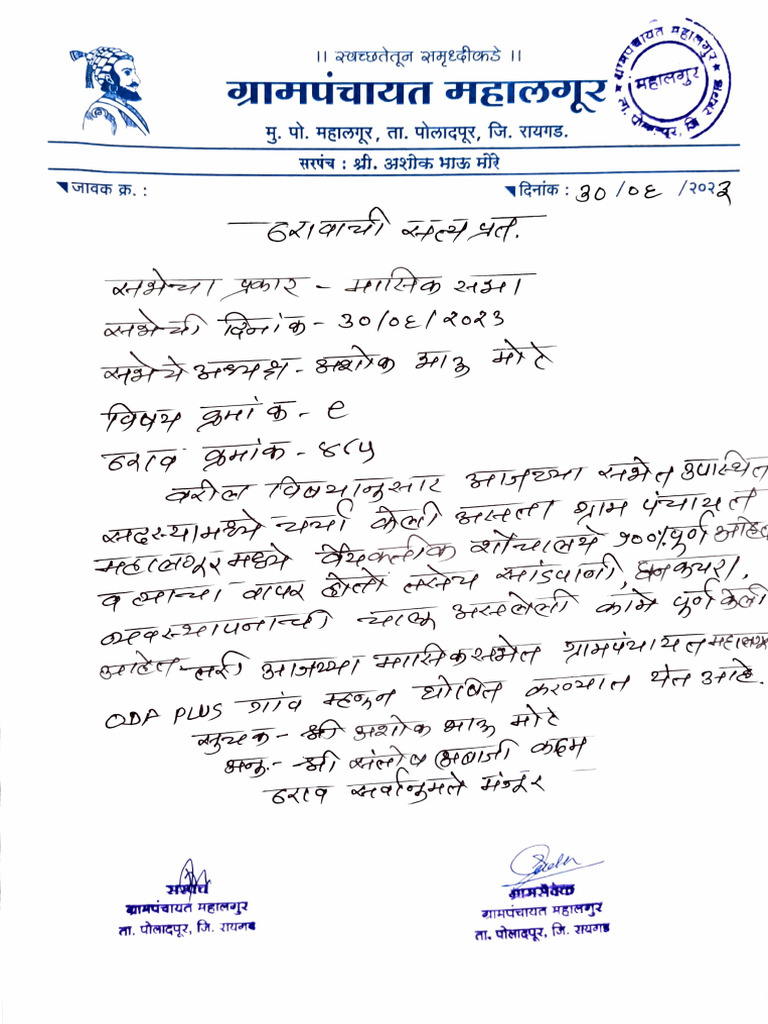 ।। स्वच्छतेतून समृध्दीकडे ।।
ग्रामपंचायत महालगूर
मु. पो. महालगूर, ता. पोलादपूर, जि. रायगड.
ग्रामपंचायत महालगुर
महालगुर
ता. पोलादपूर, जि. रायगड
सरपंच : श्री. अशोक भाऊ मोरे
जावक क्र. :
दिनांक : ३०/०६/२०२३
ठरावाची सत्यप्रत.
सभेचा प्रकार - मासिक सभा
सभेची दिनांक - ३०/०६/२०२३
सभेचे अध्यक्ष - अशोक भाऊ मोरे
विषय क्रमांक - ९
ठराव क्रमांक - ४८५
वरील विषयानुसार आजच्या सभेत उपस्थित
सदस्यामध्ये चर्चा केली असता ग्राम पंचायत
महालगूर मध्ये वैयक्तीक शौचालये १००% पूर्ण आहेत
व त्याचा वापर होतो तसेच सांडपाणी, घनकचरा,
व्यवस्थापनाची चालू असलेली कामे पूर्ण केली
आहेत तरी आजच्या मासिक सभेत ग्रामपंचायत महालगूर
ODF PLUS गांव म्हणून घोषित करण्यात येत आहे.
सुचक - श्री अशोक भाऊ मोरे
अनु. - श्री संतोष अबाजी कदम
ठराव सर्वानुमते मंजूर
सरपंच
ग्रामपंचायत महालगुर
ता. पोलादपूर, जि. रायगड
ग्रामसेवक
ग्रामपंचायत महालगुर
ता. पोलादपूर, जि. रायगड